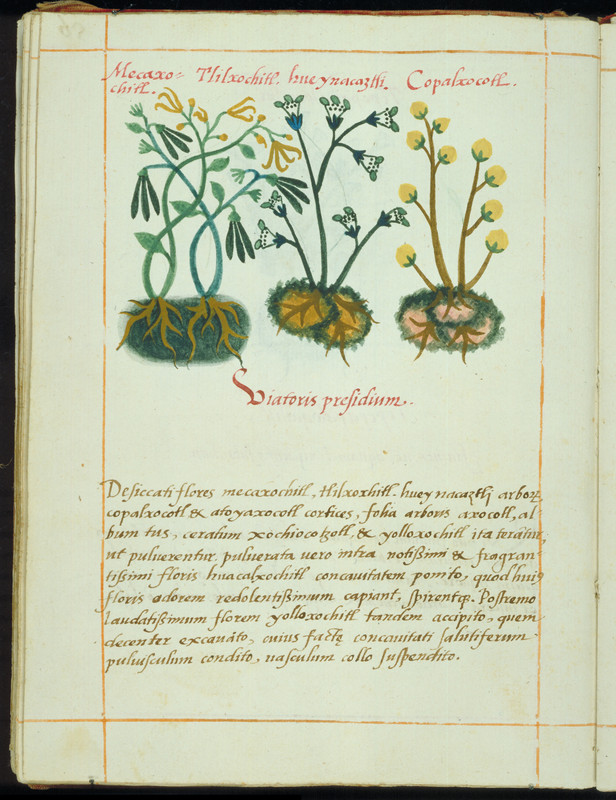 Mecaxo= Tlilxochitl. huey nacaztli. Copalxocotl.
chitl.
Viatoris presidium.
Desiccati flores mecaxochitl, tlilxoxhitl. huey nacaztli arborę
copalxocotl & atoyaxocotl cortices, folia arboris axocotl, al
bum tus, ceratum xochiocotzotl, & yolloxochitl ita terātur,
ut pulverentur, pulverata uero intra notißimi & fragran
tißimi floris huacalxochitl concauitatem ponito, quod huiꝰ
floris odorem redolentißimum capiant, spirentqꝫ. Postremo
laudatißimum florem yolloxochitl tandem accipito, quem
decenter excauato, cuius factę concauitati salutiferum
puluisculum condito, uasculum collo suspendito.